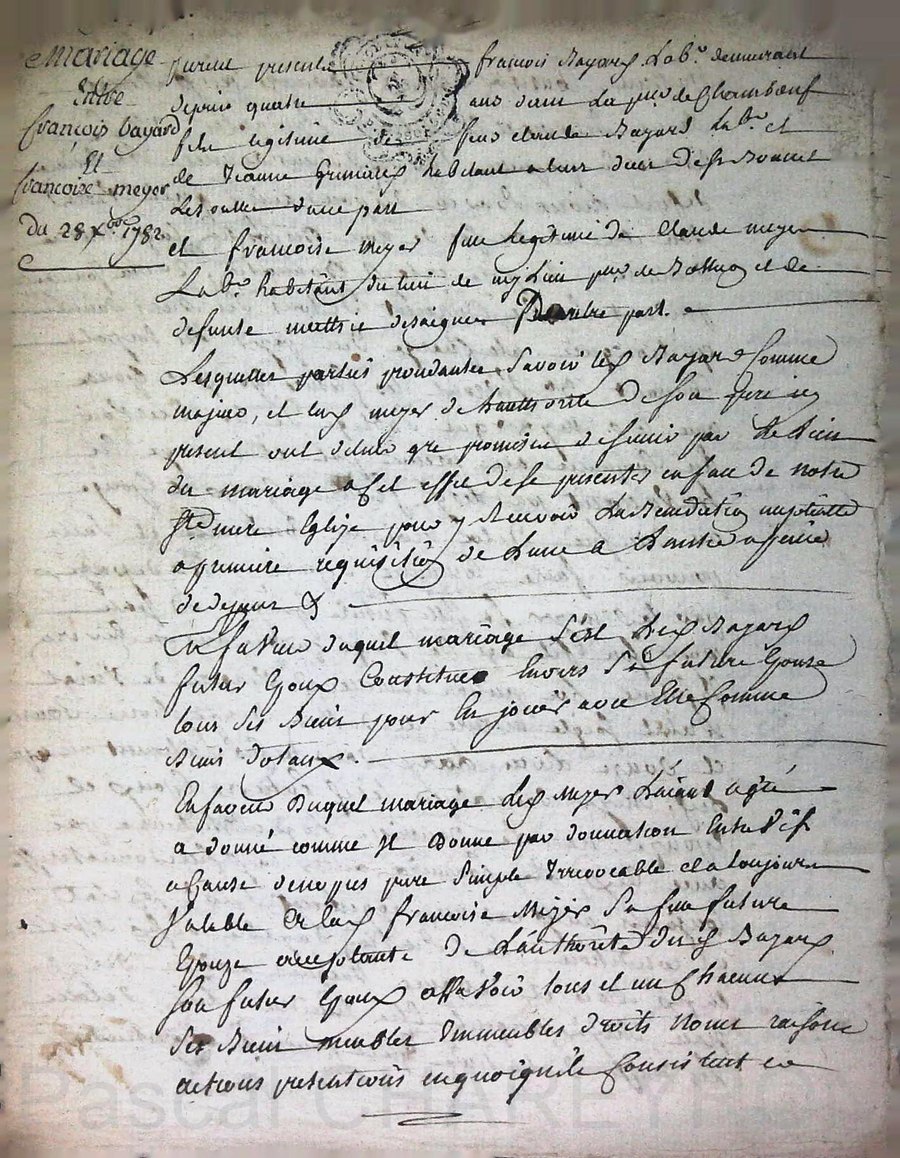 Mariage
Entre
François bayard
Et
francoise meyer
du 28 Xbre 1782
furent presents françois Bayard Labr. demeurant
depuis quatre ans dans La
fils legitime de feu claude Bayard Labr. et
de Jeanne habitant
d'une part
et francoise meyer fille legitime de claude meyer
Labr. habitant du lieu de et de
defunte D'autre part.
Lesquelles parties Savoir led Bayard Comme
majeur, et lad meyer de Lauthorité de Son pere icy
present ont de sunir par Le lien
du mariage a cet effet de se presenter en face de notre
Ste mere Eglize pour y Recevoir La Benediction nuptialle
a premiere requisition de Lune a Lautre a peine
de depens &
En faveur duquel mariage Sest led Bayard
futur Epoux Constitué Envers Sa future Epouze
tous Ses Biens pour En jouir avec Elle Comme
Biens dotaux.
En faveur Duquel mariage led Meyer
a donné comme Il Donne par donnation Entre Vifs
a Cause de nopces pure Simple Irrevocable et a toujours
Valable a lad francoise Meyer Sa fille future
Epouze acceptante de Lauthorité dud Bayard
Son futur Epoux assavoir tous et un Chacuns
Ses Biens meubles Immeubles droits Noms raisons
actions en quoi quils Consistent
Pascal CHAREYRE